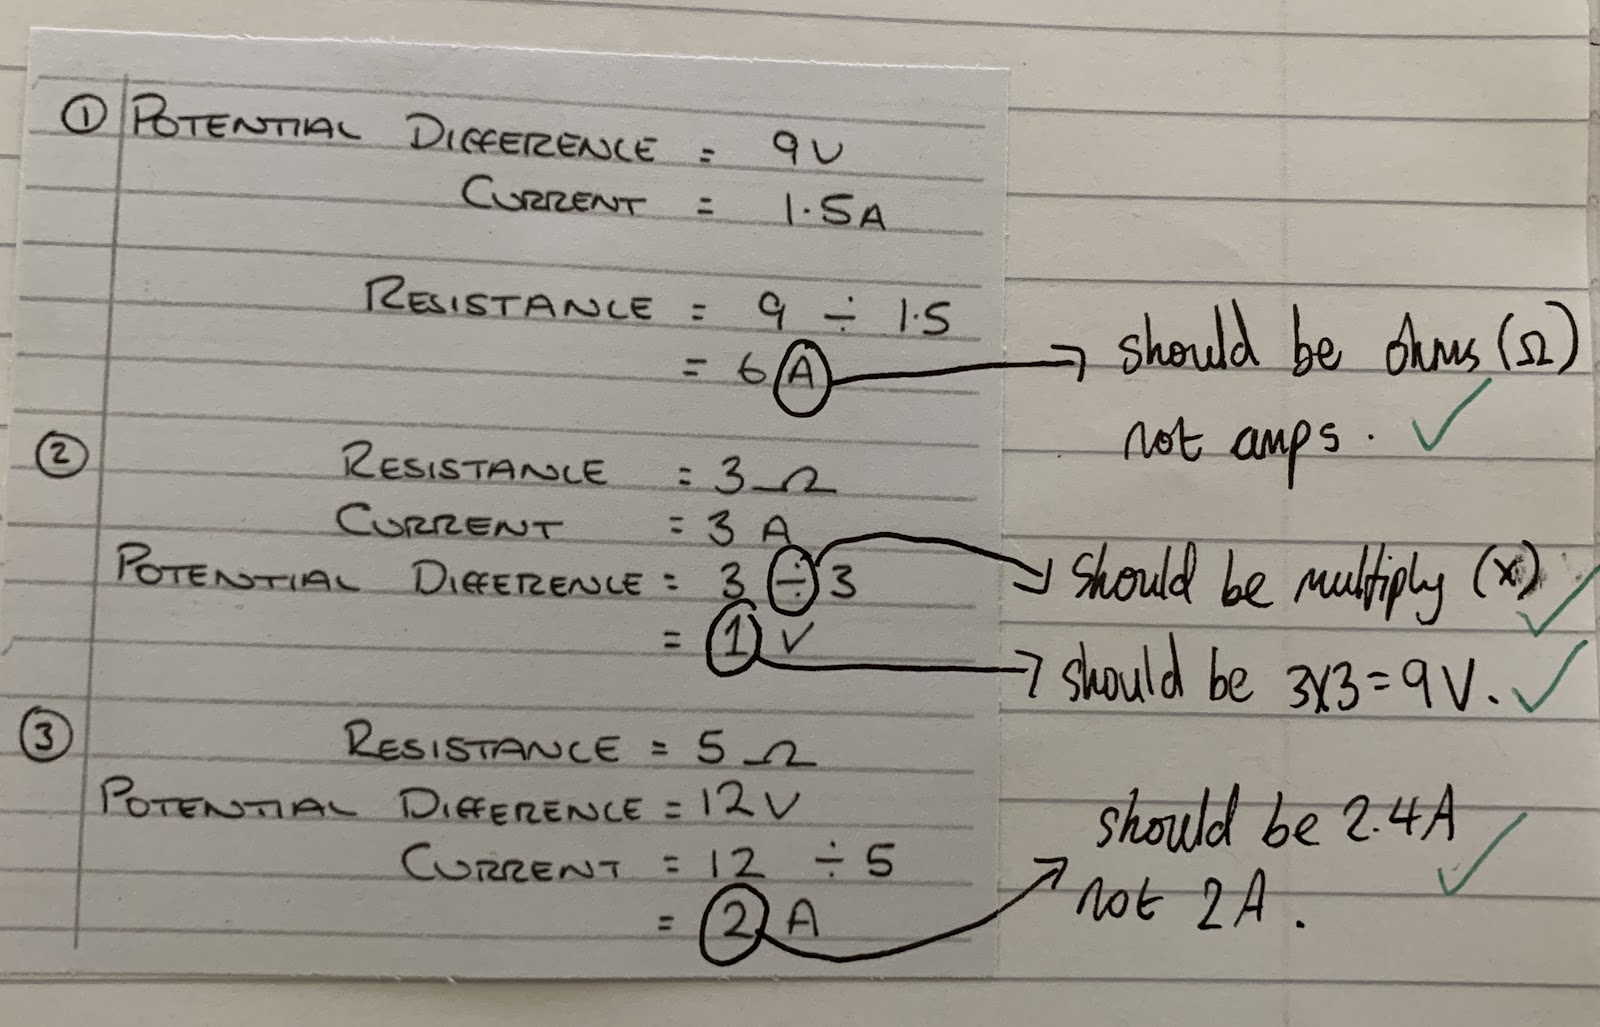 ① POTENTIAL DIFFERENCE = 9V
CURRENT = 1.5A
RESISTANCE = 9 ÷ 1.5
= 6 A
should be ohms (Ω)
not amps.
② RESISTANCE = 3Ω
CURRENT = 3 A
POTENTIAL DIFFERENCE = 3 ÷ 3
should be multiply (x)
= 1 V
should be 3x3=9V.
③ RESISTANCE = 5 Ω
POTENTIAL DIFFERENCE = 12V
CURRENT = 12 ÷ 5
= 2 A
should be 2.4A
not 2A.